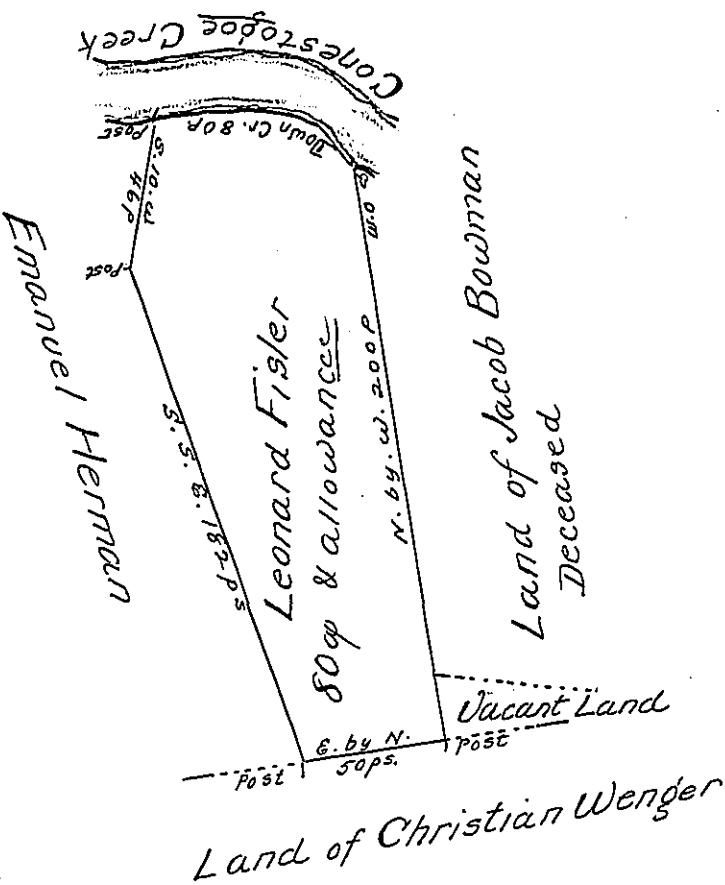 Conestogoe Creek
Down Cr. 80p
Post
S. 10. W
46p
Post
W.O
Emanuel Herman
S. S. E. 182 ps
Leonard Fisler
80ap & allowancee
N. by. W. 200p
Land of Jacob Bowman
Deceased
Vacant Land
E. by N.
50ps.
Post
Post
Land of Christian Wenger